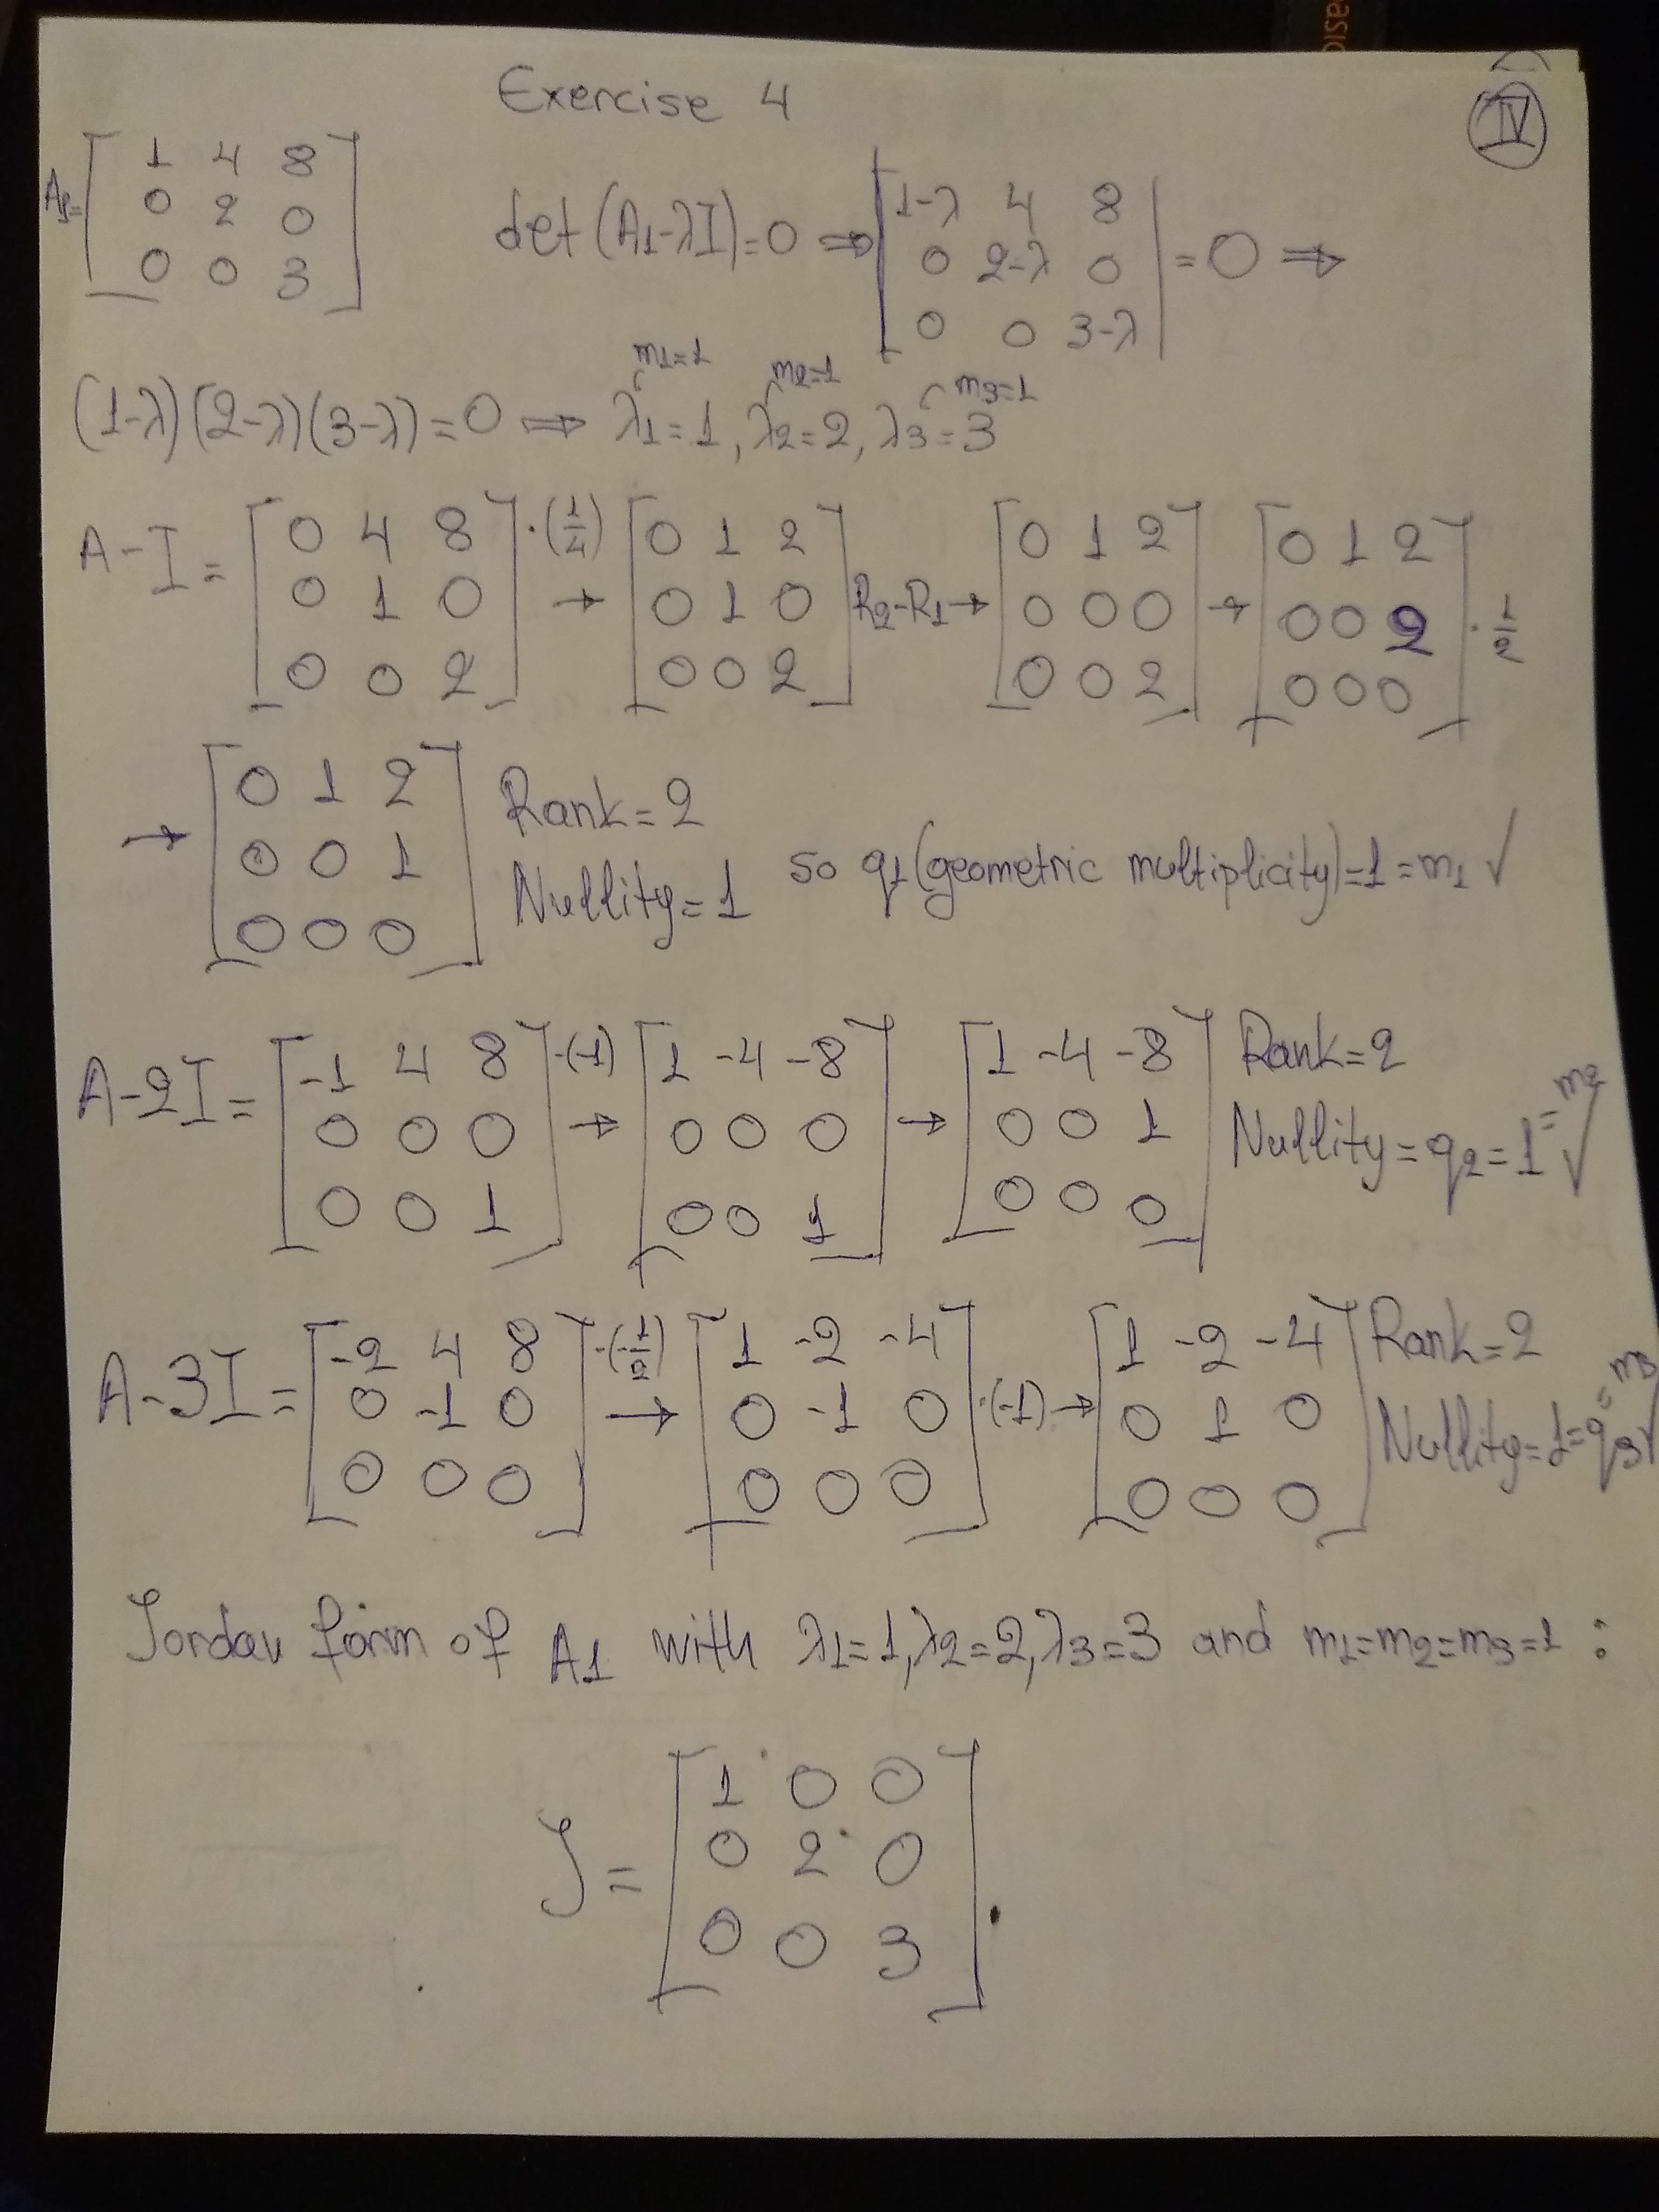 asic
Exercise 4
IV
A1= [ 1 4 8 ; 0 2 0 ; 0 0 3 ] det (A1-λI)=0 ⇒ | 1-λ 4 8 ; 0 2-λ 0 ; 0 0 3-λ | = 0 ⇒
m1=1 m2=1 m3=1
(1-λ)(2-λ)(3-λ)=0 ⇒ λ1=1, λ2=2, λ3=3
A-I= [ 0 4 8 ; 0 1 0 ; 0 0 2 ] ·(1/4) → [ 0 1 2 ; 0 1 0 ; 0 0 2 ] R2-R1 → [ 0 1 2 ; 0 0 0 ; 0 0 2 ] → [ 0 1 2 ; 0 0 2 ; 0 0 0 ] · 1/2
→ [ 0 1 2 ; 0 0 1 ; 0 0 0 ] Rank=2
Nullity=1 so q1(geometric multiplicity)=1=m1 ✓
A-2I= [ -1 4 8 ; 0 0 0 ; 0 0 1 ] ·(-1) → [ 1 -4 -8 ; 0 0 0 ; 0 0 1 ] → [ 1 -4 -8 ; 0 0 1 ; 0 0 0 ] Rank=2
Nullity=q2=1=m2 ✓
A-3I= [ -2 4 8 ; 0 -1 0 ; 0 0 0 ] ·(-1/2) → [ 1 -2 -4 ; 0 -1 0 ; 0 0 0 ] ·(-1) → [ 1 -2 -4 ; 0 1 0 ; 0 0 0 ] Rank=2
Nullity=1=q3=m3 ✓
Jordan form of A1 with λ1=1, λ2=2, λ3=3 and m1=m2=m3=1 :
J= [ 1 0 0 ; 0 2 0 ; 0 0 3 ] .